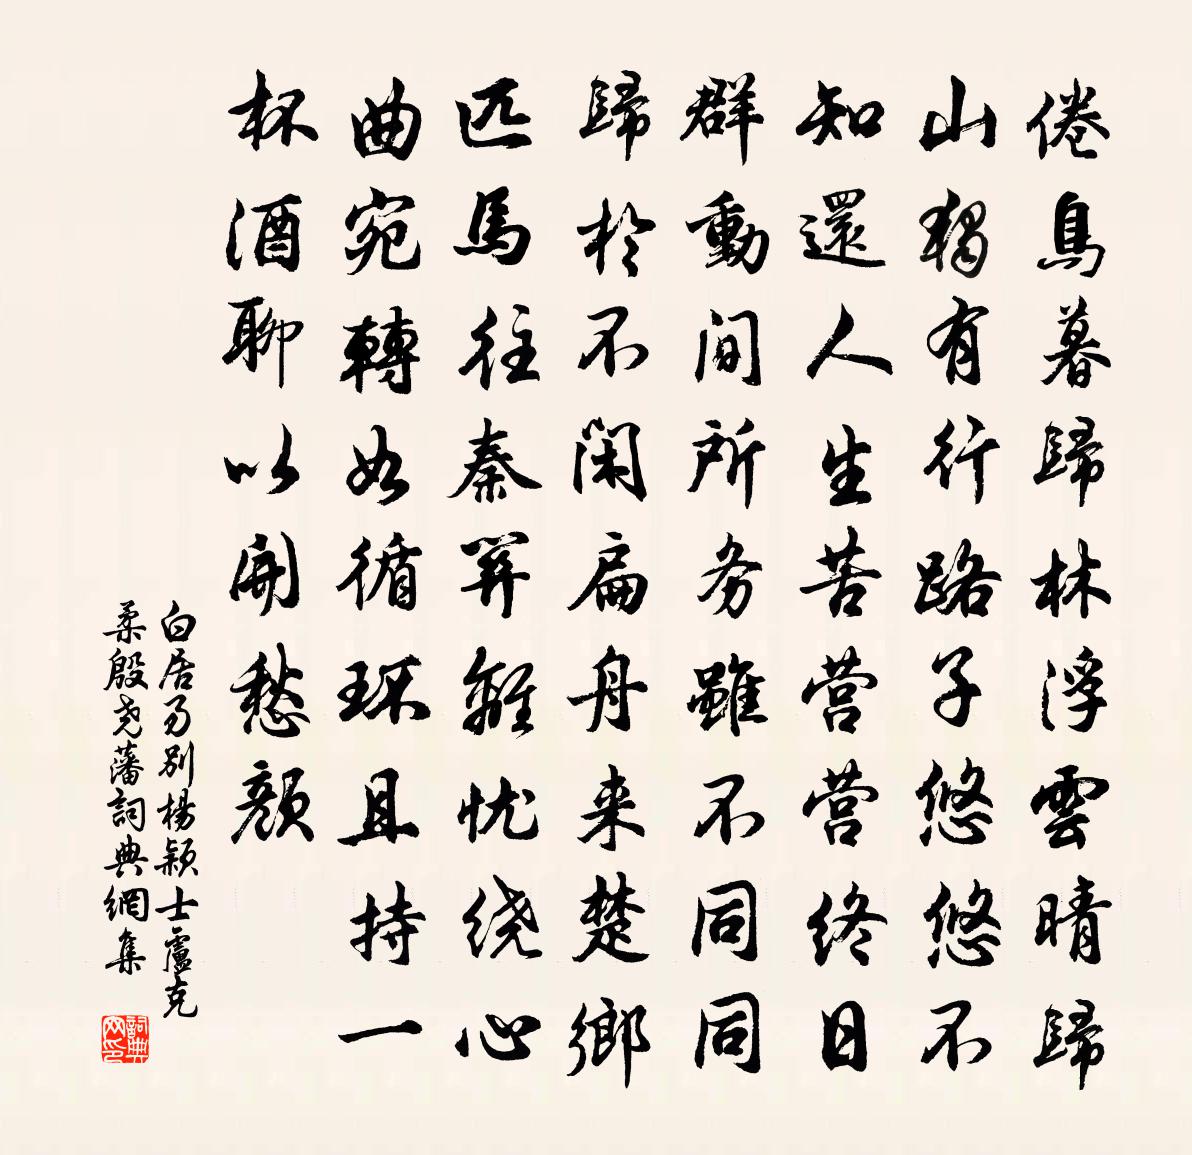 倦鳥暮歸林浮雲晴歸
山獨有行路子悠悠不
知還人生苦营营终日
群動间所务雖不同同
歸於不闲扁舟来楚鄉
匹馬往秦關離忧绕心
曲宛轉如循环且持一
杯酒聊以開愁顏
白居易別楊颖士盧克
柔殷堯藩詞典網集
詞典网印